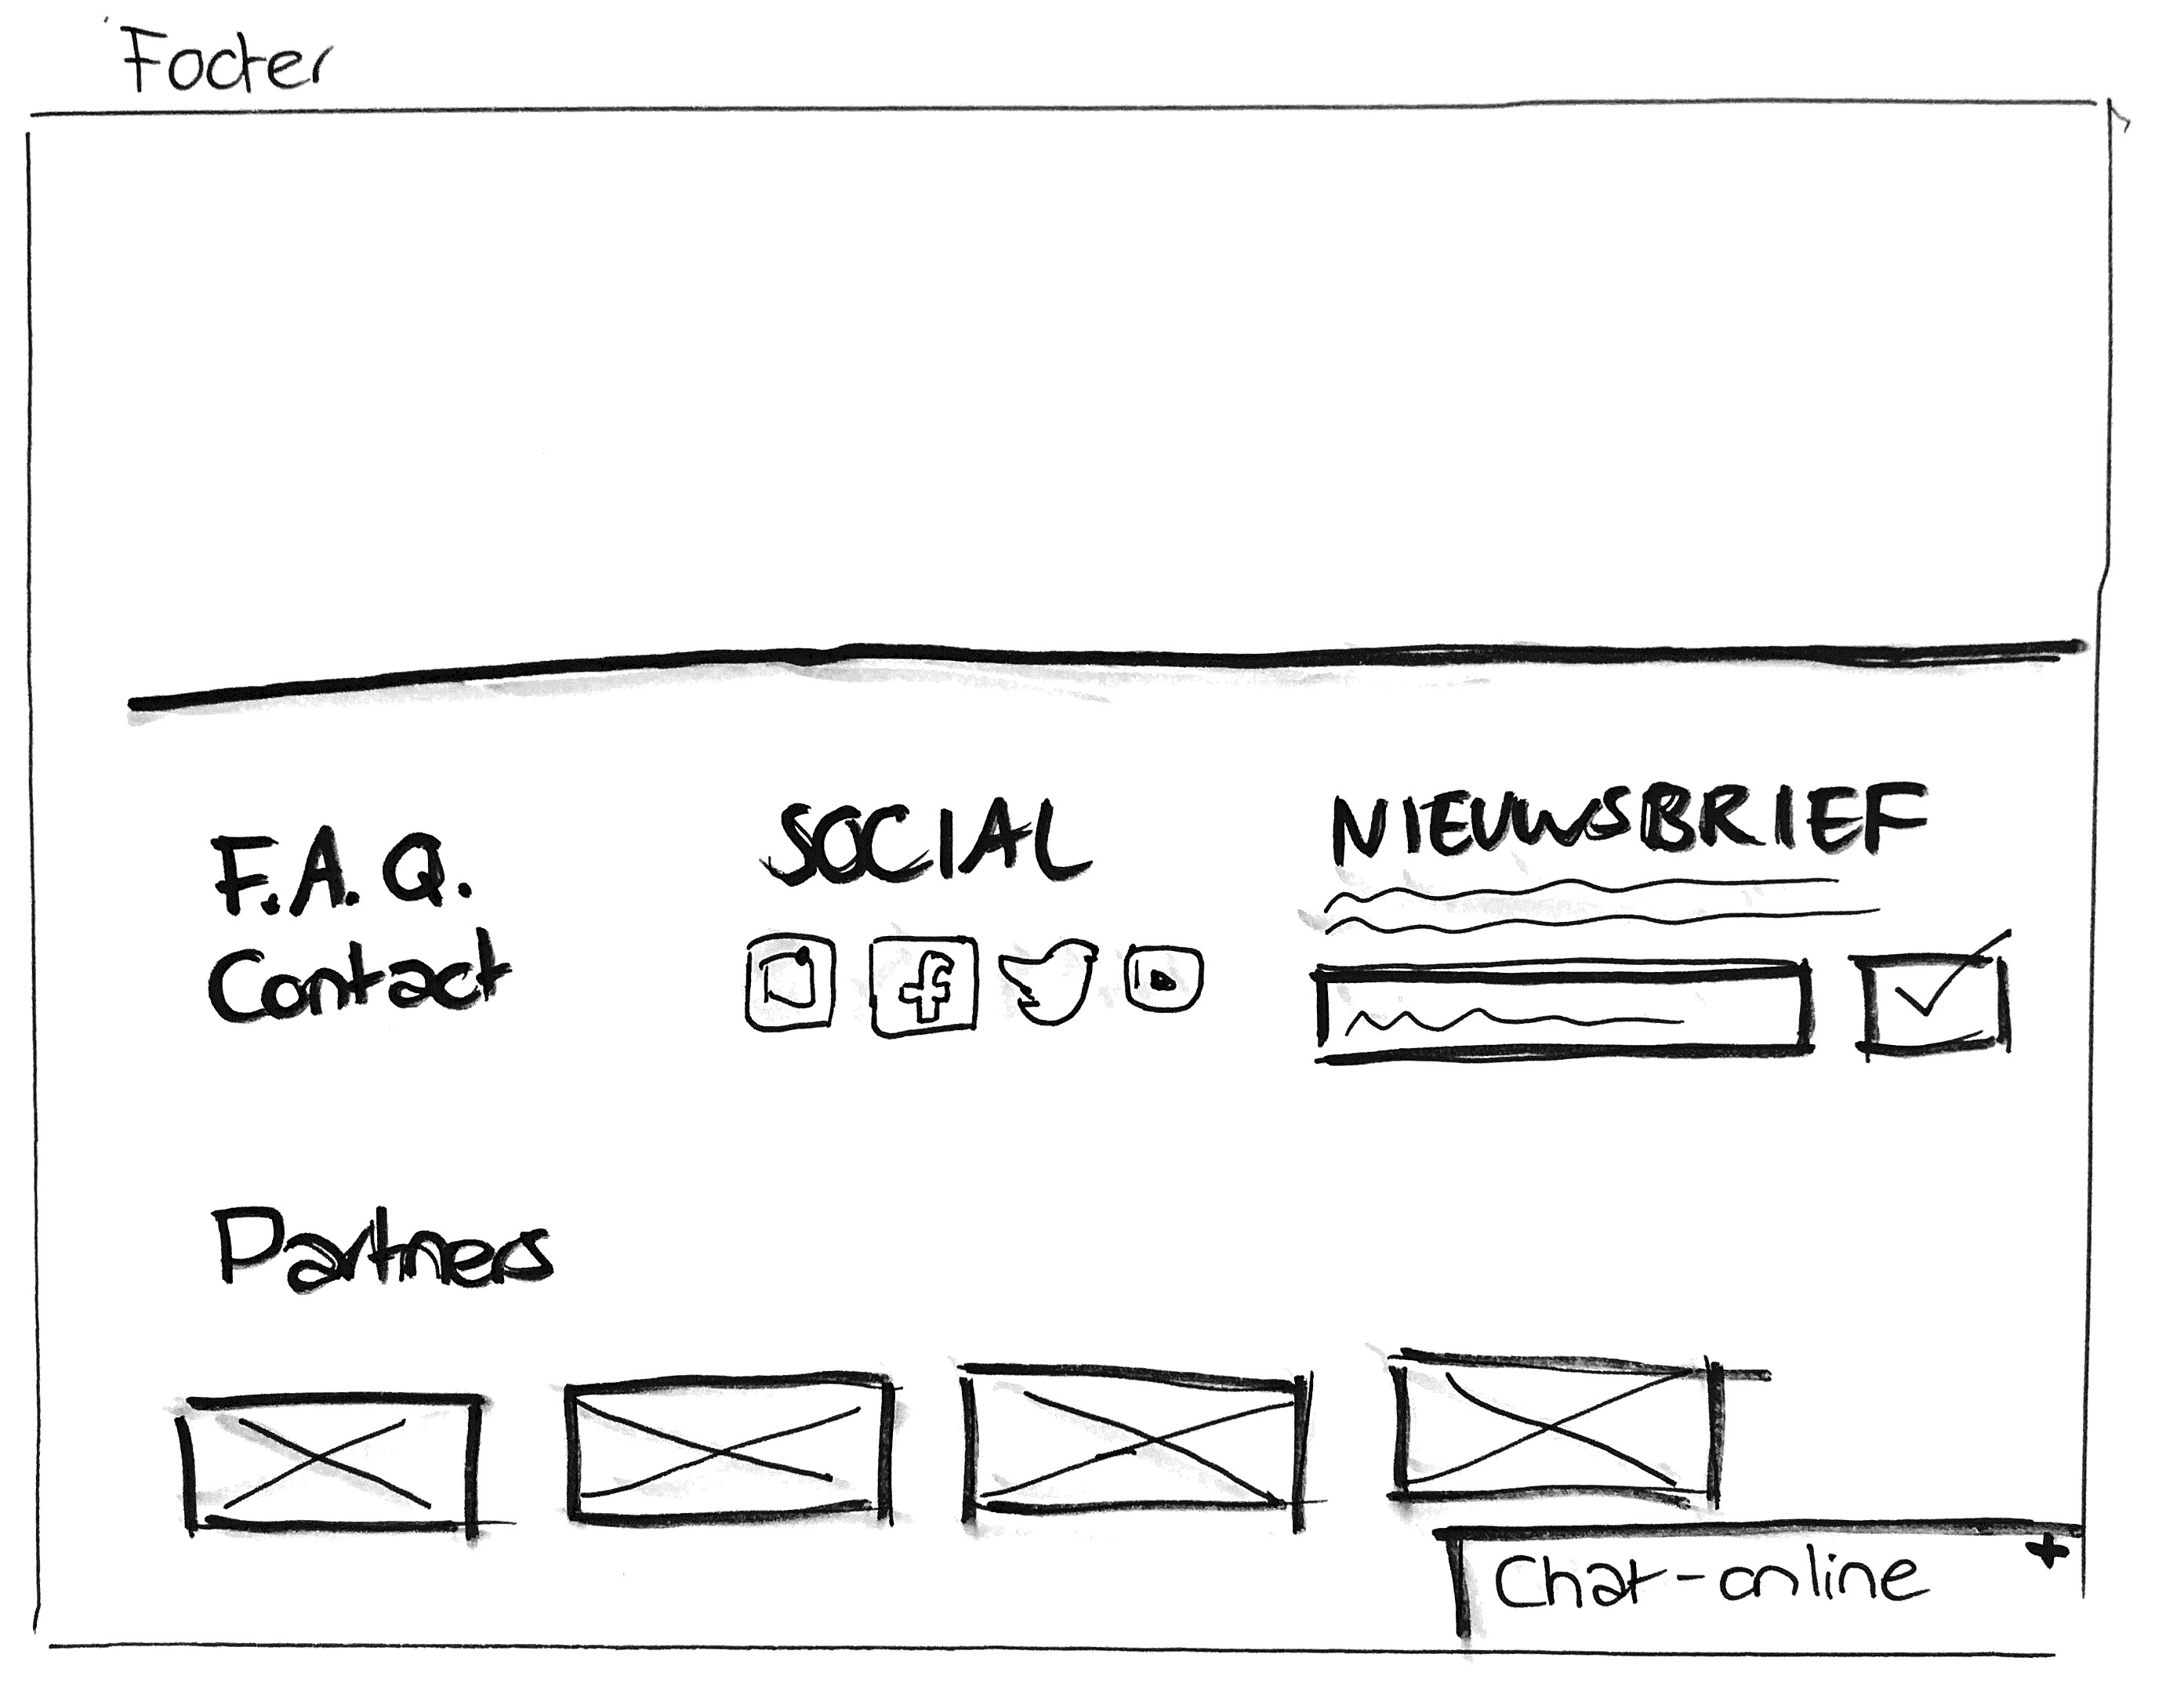 Footer
F.A.Q.
Contact
SOCIAL
NIEUWSBRIEF
Partners
Chat-online +